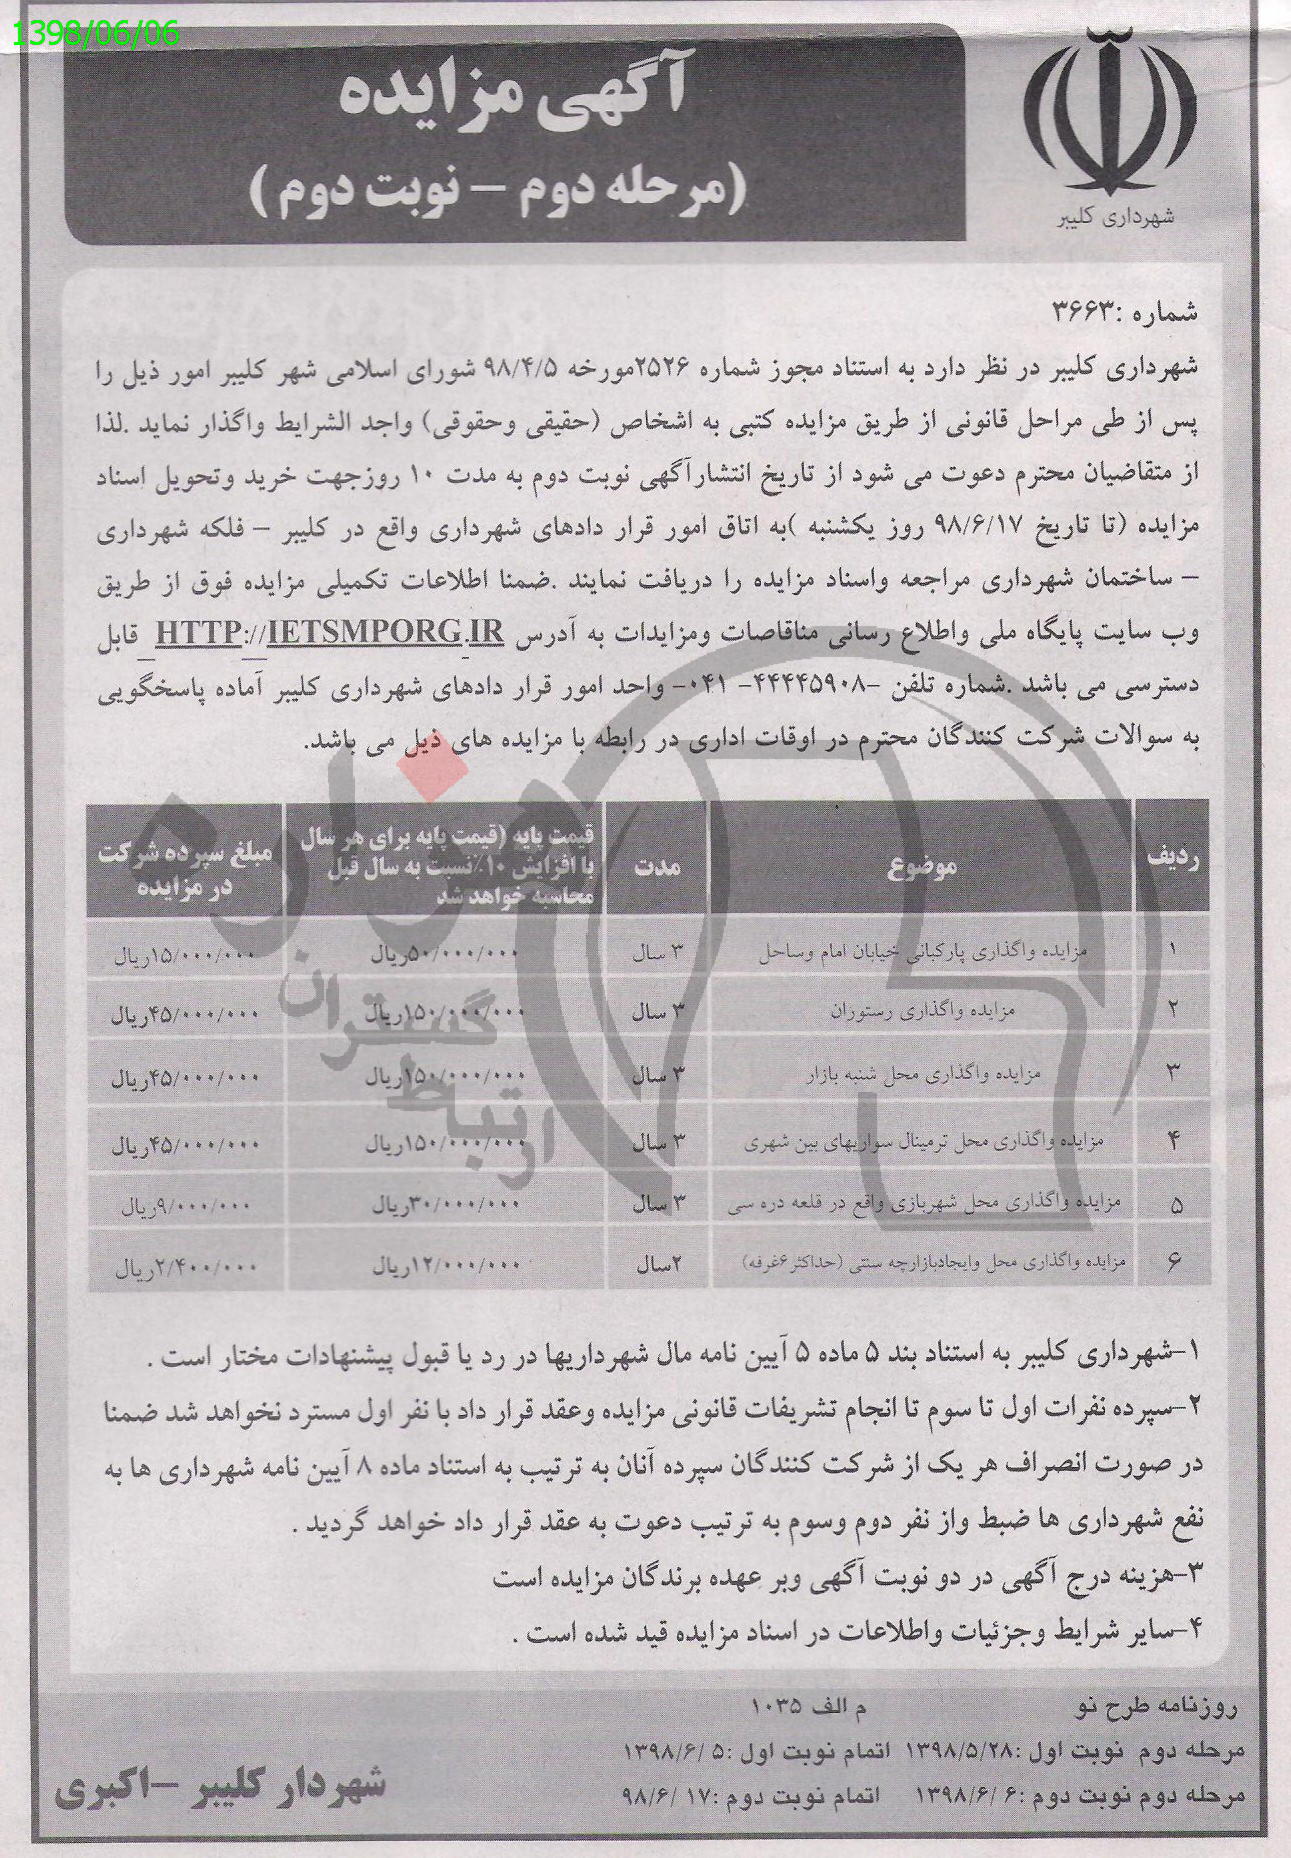 1398/06/06
آگهی مزایده
(مرحله دوم – نوبت دوم )
شهرداری کلیبر
شماره :۳۶۶۳
شهرداری کلیبر در نظر دارد به استناد مجوز شماره ۲۵۲۶مورخه ۹۸/۴/۵ شورای اسلامی شهر کلیبر امور ذیل را
پس از طی مراحل قانونی از طریق مزایده کتبی به اشخاص (حقیقی وحقوقی) واجد الشرایط واگذار نماید .لذا
از متقاضیان محترم دعوت می شود از تاریخ انتشارآگهی نوبت دوم به مدت ۱۰ روزجهت خرید وتحویل اسناد
مزایده (تا تاریخ ۹۸/۶/۱۷ روز یکشنبه )به اتاق امور قرار دادهای شهرداری واقع در کلیبر – فلکه شهرداری
– ساختمان شهرداری مراجعه واسناد مزایده را دریافت نمایند .ضمنا اطلاعات تکمیلی مزایده فوق از طریق
وب سایت پایگاه ملی واطلاع رسانی مناقاصات ومزایدات به آدرس HTTP://IETSMPORG.IR قابل
دسترسی می باشد .شماره تلفن -۴۴۴۴۵۹۰۸- ۰۴۱- واحد امور قرار دادهای شهرداری کلیبر آماده پاسخگویی
به سوالات شرکت کنندگان محترم در اوقات اداری در رابطه با مزایده های ذیل می باشد.
ردیف موضوع مدت قیمت پایه (قیمت پایه برای هر سال با افزایش ۱۰٪نسبت به سال قبل محاسبه خواهد شد مبلغ سپرده شرکت در مزایده
۱ مزایده واگذاری پارکبانی خیابان امام وساحل ۳ سال ۵۰/۰۰۰/۰۰۰ریال ۱۵/۰۰۰/۰۰۰ریال
۲ مزایده واگذاری رستوران ۳ سال ۱۵۰/۰۰۰/۰۰۰ریال ۴۵/۰۰۰/۰۰۰ریال
۳ مزایده واگذاری محل شنبه بازار ۳ سال ۱۵۰/۰۰۰/۰۰۰ریال ۴۵/۰۰۰/۰۰۰ریال
۴ مزایده واگذاری محل ترمینال سواریهای بین شهری ۳ سال ۱۵۰/۰۰۰/۰۰۰ریال ۴۵/۰۰۰/۰۰۰ریال
۵ مزایده واگذاری محل شهربازی واقع در قلعه دره سی ۳ سال ۳۰/۰۰۰/۰۰۰ریال ۹/۰۰۰/۰۰۰ریال
۶ مزایده واگذاری محل وایجادبازارچه سنتی (حداکثر۶غرفه) ۲سال ۱۲/۰۰۰/۰۰۰ریال ۲/۴۰۰/۰۰۰ریال
ارتباط گستران
۱–شهرداری کلیبر به استناد بند ۵ ماده ۵ آیین نامه مال شهرداریها در رد یا قبول پیشنهادات مختار است .
۲–سپرده نفرات اول تا سوم تا انجام تشریفات قانونی مزایده وعقد قرار داد با نفر اول مسترد نخواهد شد ضمنا
در صورت انصراف هر یک از شرکت کنندگان سپرده آنان به ترتیب به استناد ماده ۸ آیین نامه شهرداری ها به
نفع شهرداری ها ضبط واز نفر دوم وسوم به ترتیب دعوت به عقد قرار داد خواهد گردید .
۳–هزینه درج آگهی در دو نوبت آگهی وبر عهده برندگان مزایده است
۴–سایر شرایط وجزئیات واطلاعات در اسناد مزایده قید شده است .
روزنامه طرح نو م الف ۱۰۳۵
مرحله دوم نوبت اول :۱۳۹۸/۵/۲۸ اتمام نوبت اول :۵ /۱۳۹۸/۶
مرحله دوم نوبت دوم :۶ /۱۳۹۸/۶ اتمام نوبت دوم :۱۷ /۹۸/۶
شهردار کلیبر –اکبری